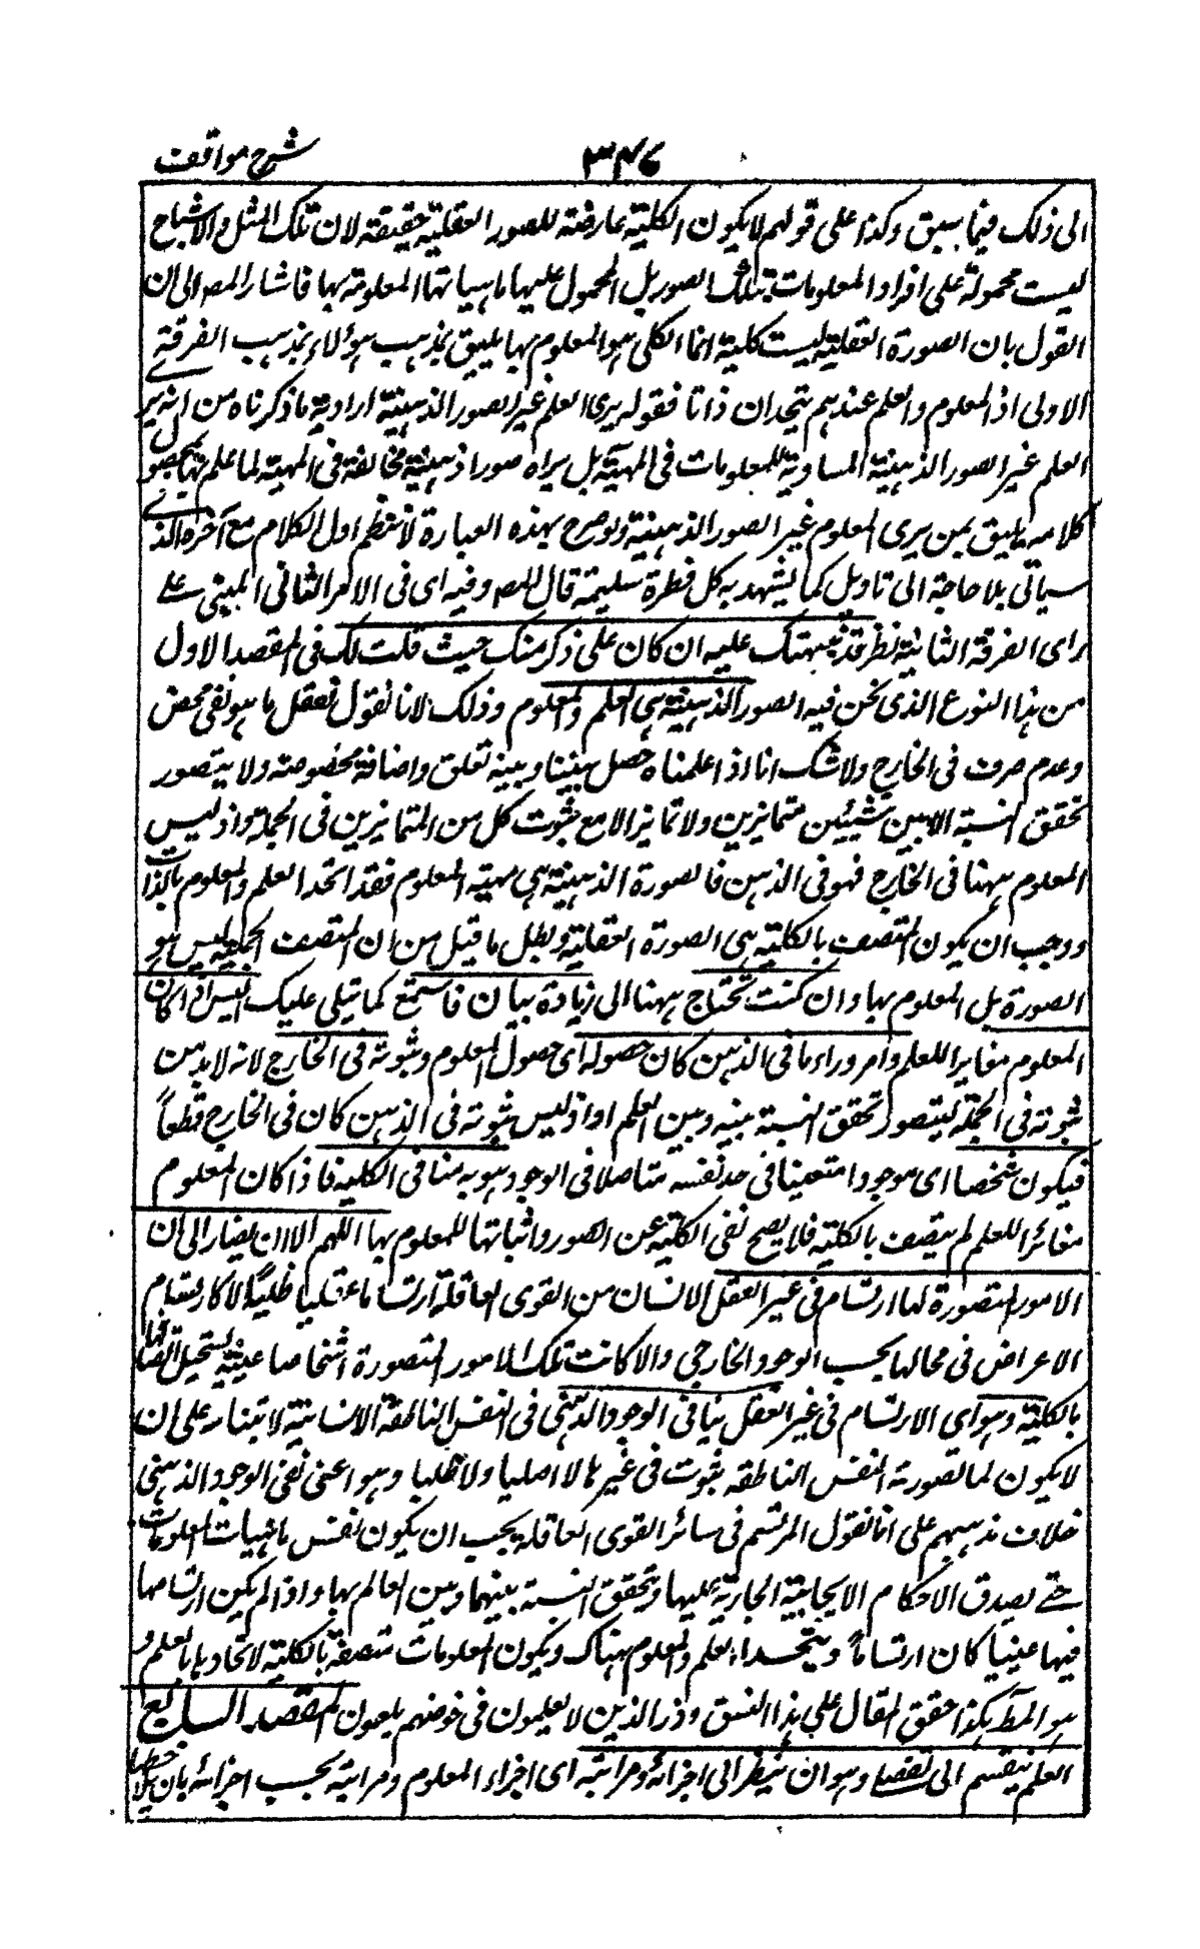 شرح مواقف
٣٤٦
الى ذلك فيما سبق وكذا على قولهم لا يكون الكلية عارضة للصور العقلية حقيقة لان تلك المثل والاشباح
ليست محمولة على افراد المعلومات بتلك الصور بل المحمول عليها ماهياتها المعلومة بها فاشار المص الى ان
القول بان الصورة العقلية ليست كلية انما الكلى هو المعلوم بها يليق بمذهب هؤلاء بمذهب الفرقة
الاولى اذ المعلوم والعلم عندهم متحدان ذاتا فقوله يرى العلم غير الصور الذهنية اراد به ما ذكرناه من انه يرى
العلم غير الصور الذهنية المساوية للمعلومات فى المهية بل يراه صورا ذهنية مخالفة فى المهية لما علم بها محصول
كلامه يليق بمن يرى المعلوم غير الصور الذهنية ولو صرح بهذه العبارة لانتظم اول الكلام مع آخره الذى
سياتى بلا حاجة الى تاويل كما يشهد به كل فطرة سليمة قال المص وفيه اى فى الامر الثانى المبنى على
راى الفرقة الثانية نظر قد نبهتك عليه ان كان على ذكر منك حيث قلت لك فى المقصد الاول
من هذا النوع الذى نحن فيه الصور الذهنية هى العلم والمعلوم وذلك لانا نقول نعقل ما هو نفى محض
وعدم صرف فى الخارج ولا شك انا اذا علمناه حصل بيننا وبينه تعلق واضافة مخصوصة ولا يتصور
تحقق النسبة الا بين شيئين متمايزين ولا تمايز الا مع ثبوت كل من المتمايزين فى الجملة واذ ليس
المعلوم ههنا فى الخارج فهو فى الذهن فالصورة الذهنية هى مهية المعلوم فقد اتحد العلم والمعلوم بالذات
ووجب ان يكون المتصف بالكلية هى الصورة العقلية وبطل ما قيل من ان المتصف بالكلية ليس هو
الصورة بل المعلوم بها وان كنت تحتاج ههنا الى زيادة بيان فاستمع كما يتلى عليك اليس اذا كان
المعلوم مغايرا للعلم وامر وراء ما فى الذهن كان حصوله اى حصول المعلوم وثبوته فى الخارج لانه لا بد من
ثبوته فى الجملة ليتصور تحقق النسبة بينه وبين العلم واذ ليس ثبوته فى الذهن كان فى الخارج قطعاً
فيكون شخصا اى موجودا متعينا فى حد نفسه متاصلا فى الوجود وهو به منافى الكلية فاذا كان المعلوم
مغائرا للعلم لم يتصف بالكلية فلا يصح نفى الكلية عن الصور واثباتها للمعلوم بها اللهم الا ان يصار الى ان
الامور المتصورة لها ارتسام فى غير العقل الانسان من القوى العاقلة ارتساما عقليا ظليًا لا كارتسام
الاعراض فى محالها بحسب الوجود الخارجى والا كانت تلك الامور المتصورة اشخاصا عينية يستحيل اتصافها
بالكلية وهو اى الارتسام فى غير العقل ينافى الوجود الذهنى فى النفس الناطقة الانسانية لابتنائه على ان
لا يكون لما تصورته النفس الناطقة ثبوت فى غيرها لا اصليا ولا ظليا وهو اعنى نفى الوجود الذهنى
خلاف مذهبهم على انا نقول المرتسم فى سائر القوى العاقلة يجب ان يكون نفس ماهيات المعلومات
حتى يصدق الاحكام الايجابية الجارية عليها ويتحقق النسبة بينهما وبين العالم بها واذا لم يكن ارتسامها
فيها عينيا كان ارتساماً ويتحد العلم والمعلوم هناك ويكون المعلومات متصفة بالكلية لاتحادها بالعلم و
هو المط هكذا حقق المقال على هذا النسق وذر الذين لا يعلمون فى خوضهم يلعبون المقصد السابع
العلم ينقسم الى تفصيلى وهو ان ينظر الى اجزائه ومراتبه اى اجزاء المعلوم ومراتبه بحسب اجزائه بان يلاحظها